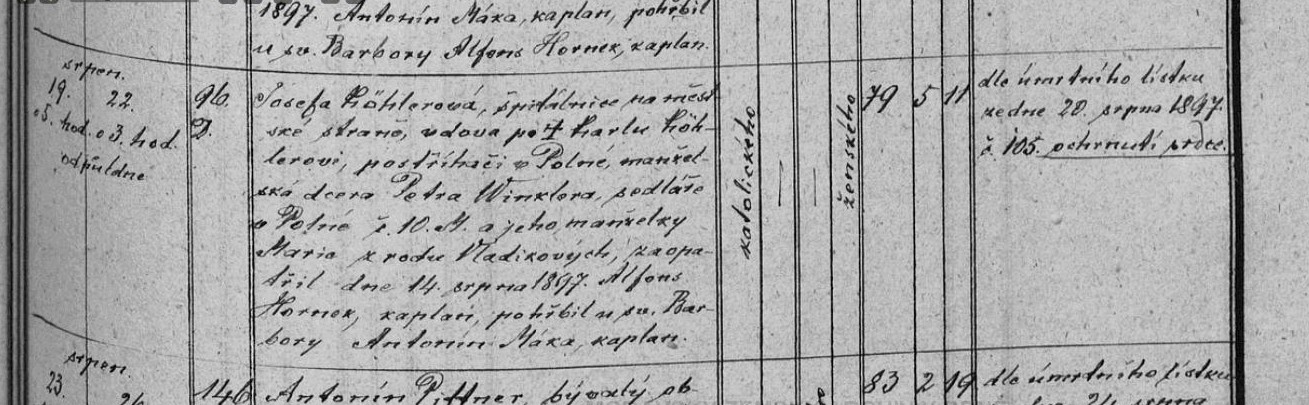 1897. Antonín Máxa, kaplan, pohřbil
u sv. Barbory Alfons Hornek, kaplan.
srpen.
19. 22.
o 5. hod. o 3. hod.
odpůldne
96.
D.
Josefa Köhlerová, špitálnice na měst-
ské straně, vdova po † Karlu Köh-
lerovi, postřihači v Polné, manžel-
ská dcera Petra Winklera, sedláře
v Polné č. 10. M. a jeho manželky
Marie z rodu Vládikových, zaopa-
třil dne 14. srpna 1897. Alfons
Hornek, kaplan, pohřbil u sv. Bar-
bory Antonín Máxa, kaplan.
katolického
ženského
79 5 11
dle úmrtního lístku
ze dne 20. srpna 1897.
č. 105. ochrnutí srdce.
srpen.
23. 26.
146
Antonín Pittner, bývalý ob-
83 2 19
dle úmrtního lístku
srpna